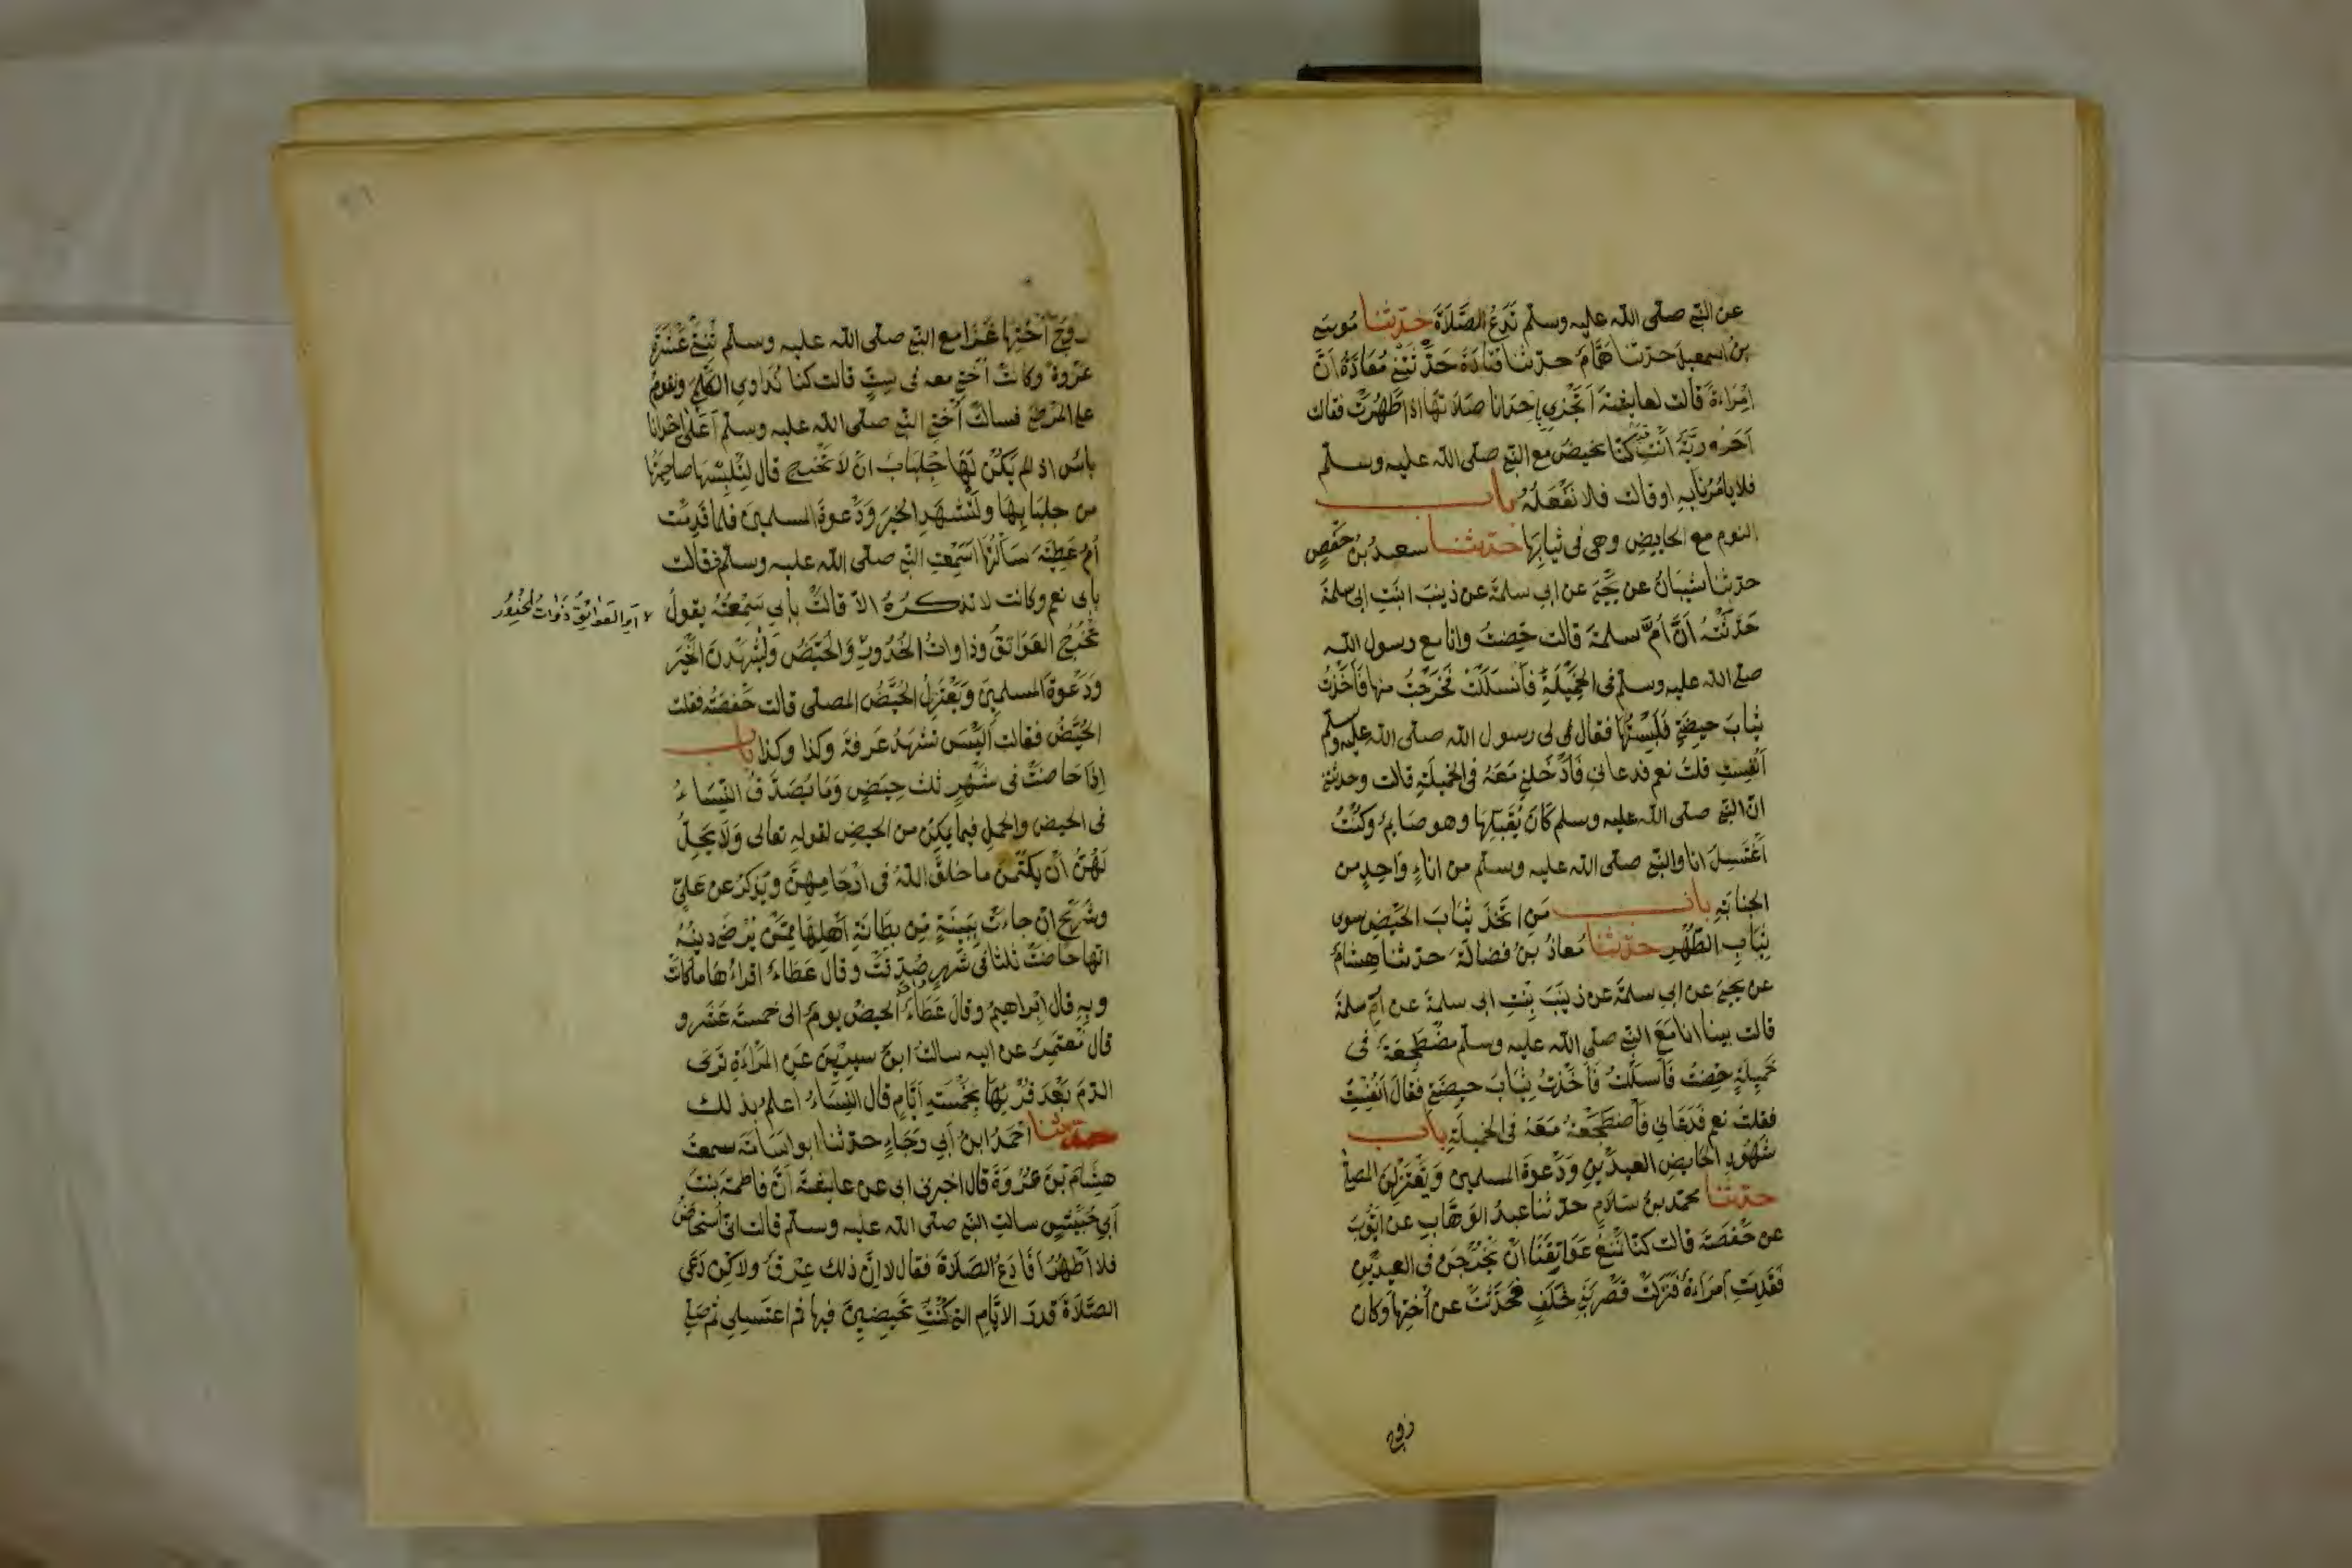 عن النبي صلى الله عليه وسلم تدع الصلاة حدثنا موسى
بن اسمعيل حدثنا همام حدثنا قتادة حدثتني معاذة أن
امراءة قالت لعايشة أتجزي إحدانا صلاتها اذا طهرت فقالت
أحرورية أنت كنا نحيض مع النبي صلى الله عليه وسلم
فلا يامرنا به او قالت فلا نفعله باب
النوم مع الحايض وهي في ثيابها حدثنا سعد بن حفص
حدثنا شيبان عن يحيى عن ابي سلمة عن زينب ابنت ابي سلمة
حدثته أن أم سلمة قالت حضت وانا مع رسول الله
صلى الله عليه وسلم في الخميلة فانسللت فخرجت منها فأخذت
ثياب حيضتي فلبستها فقال لي رسول الله صلى الله عليه وسلم
أنفست قلت نعم فدعاني فأدخلني معه في الخميلة قالت وحدثتني
ان النبي صلى الله عليه وسلم كان يقبلها وهو صايم وكنت
أغتسل انا والنبي صلى الله عليه وسلم من اناء واحد من
الجنابة باب من اتخذ ثياب الحيض سوى
ثياب الطهر حدثنا معاذ بن فضالة حدثنا هشام
عن يحيى عن ابي سلمة عن زينب بنت ابي سلمة عن أم سلمة
قالت بينا انا مع النبي صلى الله عليه وسلم مضطجعة في
خميلة حضت فانسللت فأخذت ثياب حيضتي فقال أنفست
فقلت نعم فدعاني فأضطجعت معه في الخميلة باب
شهود الحايض العيدين ودعوة المسلمين ويعتزلن المصلى
حدثنا محمد بن سلام حدثنا عبد الوهاب عن ايوب
عن حفصة قالت كنا نمنع عواتقنا ان يخرجن في العيدين
فقدمت امراءة فنزلت قصر بني خلف فحدثت عن أختها وكان
زوج
زوج أختها غزا مع النبي صلى الله عليه وسلم ثنتي عشرة
غزوة وكانت أختي معه في ست قالت كنا نداوي الكلمى ونقوم
على المرضى فسالت أختي النبي صلى الله عليه وسلم أعلى إحدانا
باس اذ لم يكن لها جلباب ان لا تخرج قال لتلبسها صاحبتها
من جلبابها ولتشهد الخير ودعوة المسلمين فلما قدمت
أم عطية سألتها اسمعت النبي صلى الله عليه وسلم فقالت
بابي نعم وكانت لا تذكره الا قالت بأبي سمعته يقول
او العواتق ذوات الخدور
تخرج العواتق وذاوات الخدور والحيض وليشهدن الخير
ودعوة المسلمين ويعتزل الحيض المصلى قالت حفصة فقلت
الحيض فقالت أليس تشهد عرفة وكذا وكذا باب
إذا حاضت في شهر ثلث حيض وما يصدق النساء
في الحيض والحمل فيما يمكن من الحيض لقوله تعالى ولا يحل
لهن أن يكتمن ما خلق الله في ارحامهن ويذكر عن علي
وشريح ان جاءت ببينة من بطانة أهلها ممن يرضى دينه
انها حاضت ثلثا في شهر صدقت وقال عطاء اقراءها ما كانت
وبه قال ابراهيم وقال عطاء الحيض يوم الى خمسة عشر و
قال معتمر عن ابيه سالت ابن سيرين عن المراءة ترى
الدم بعد قرئها بخمسة أيام قال النساء اعلم بذلك
حدثنا احمد ابن أبي رجاء حدثنا ابو اسامة سمعت
هشام بن عروة قال اخبرني ابي عن عايشة أن فاطمة بنت
أبي حبيش سالت النبي صلى الله عليه وسلم قالت اني أستحاض
فلا اطهر أفأدع الصلاة فقال لا إن ذلك عرق ولاكن دعي
الصلاة قدر الايام التي كنت تحيضين فيها ثم اغتسلي ثم صلي